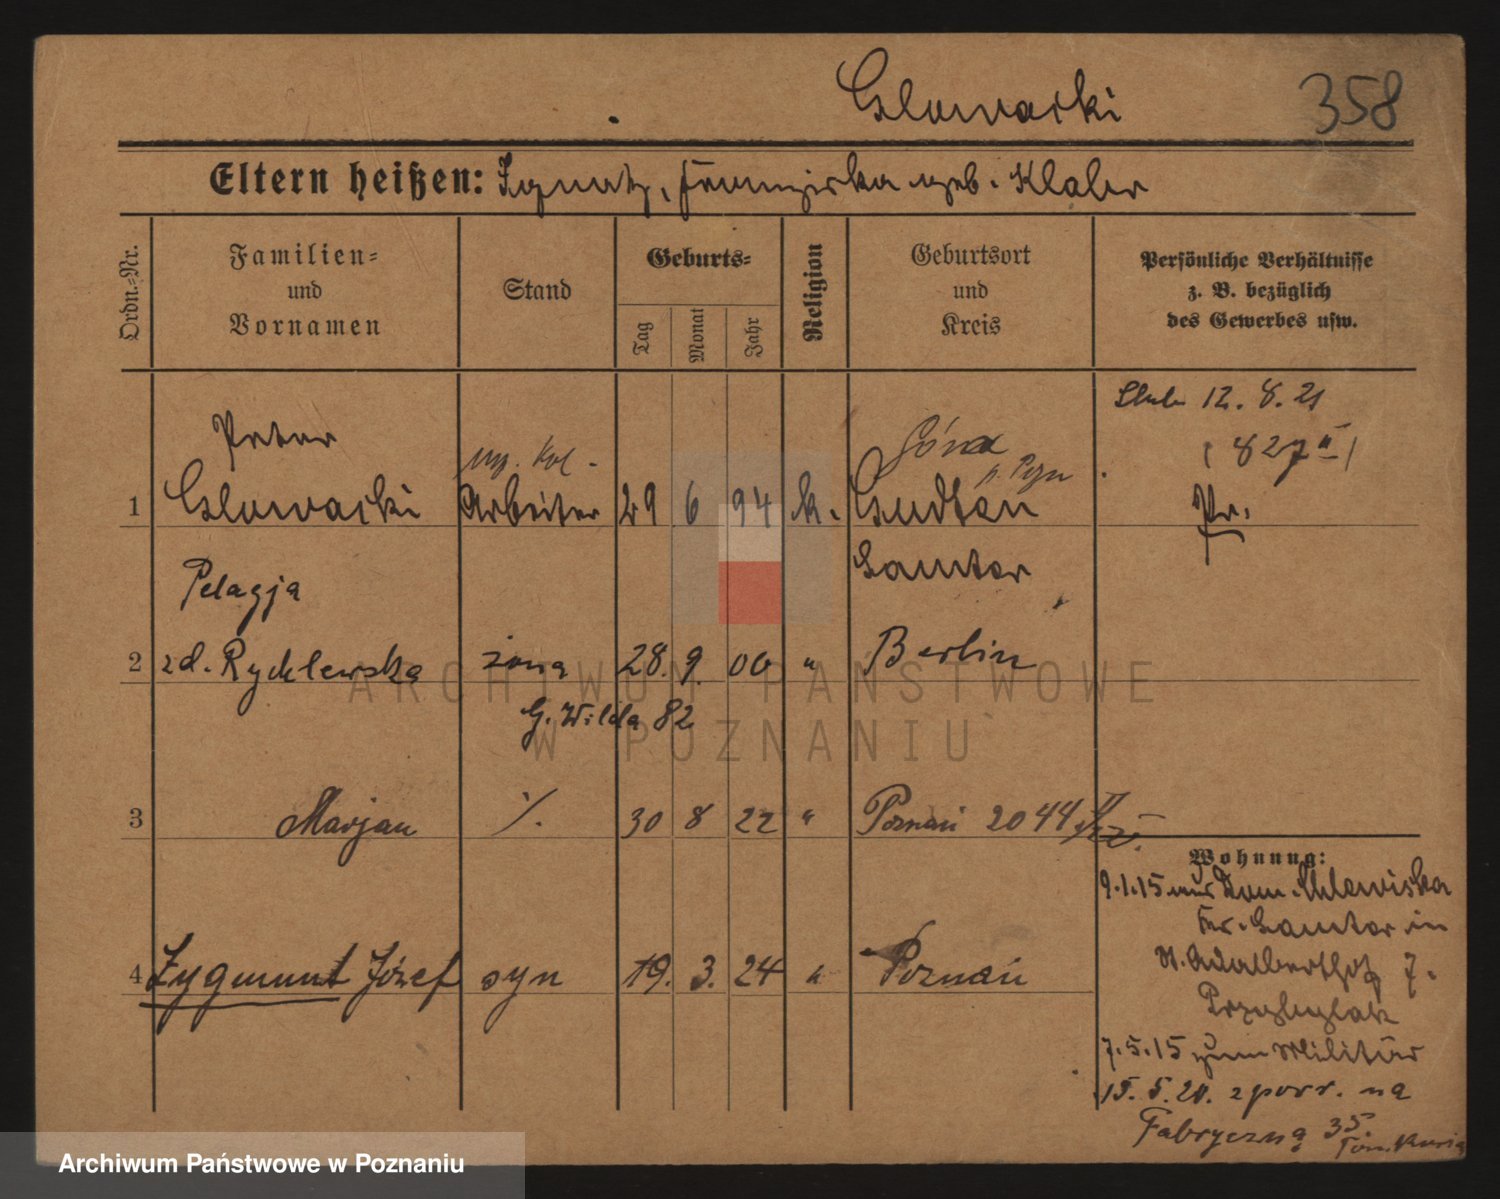 Glowacki
358
Eltern heißen: Ignatz, Franziska geb. Klabr
Ordn.-Nr.
Familien-
und
Vornamen
Stand
Geburts-
Tag
Monat
Jahr
Religion
Geburtsort
und
Kreis
Persönliche Verhältnisse
z. B. bezüglich
des Gewerbes usw.
Ślub 12. 8. 21
(827 II)
Pr.
Peter
Góra
p.
1 Glowacki Arbeiter 29 6 94 k. Gudten
Samter
Pelagja
2 zd. Rychlewska żona 28. 9. 00 " Berlin
G. Wilda 82
3 Marjan ./. 30 8 22 " Poznań 2044 II
4 Zygmunt Józef syn 19. 3. 24 " Poznań
Wohnung:
9.1.15 aus Dom. Chlewiska
Kr. Samter in
St. Adalberthof 7.
7.5.15 zum Militär
15. 5. 20. z powr. na
Fabryczną 35.
ARCHIWUM PAŃSTWOWE
W POZNANIU
Archiwum Państwowe w Poznaniu